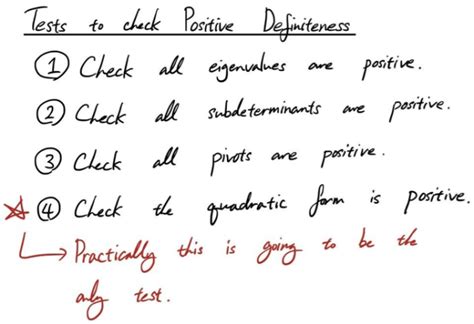 Tests to check Positive Definiteness
① Check all eigenvalues are positive.
② Check all subdeterminants are positive.
③ Check all pivots are positive.
④ Check the quadratic form is positive.
Practically this is going to be the
only test.